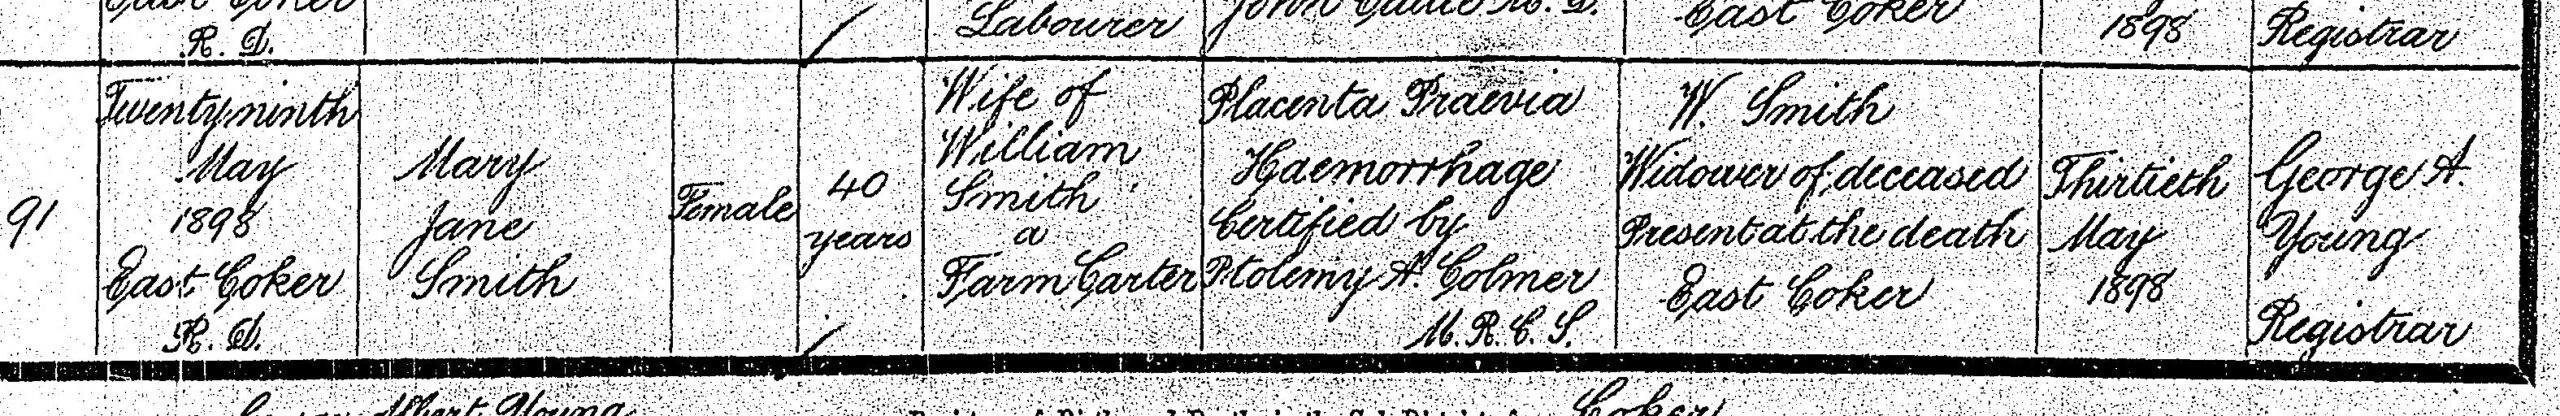 R. D.
Labourer
East Coker
1898
Registrar
91
Twenty ninth
May
1898
East Coker
R. D.
Mary
Jane
Smith
Female
40
years
Wife of
William
Smith
a
Farm Carter
Placenta Praevia
Haemorrhage
Certified by
Ptolemy A. Colmer
M. R. C. S.
W. Smith
Widower of deceased
Present at the death
East Coker
Thirtieth
May
1898
George A.
Young
Registrar
Albert Young
Coker